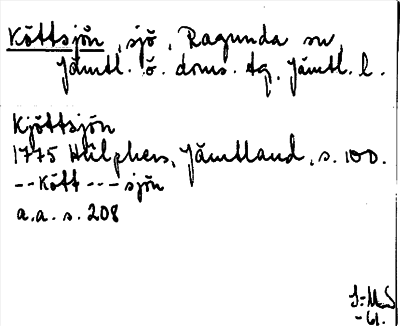 Köttsjön, sjö, Ragunda sn,
Jämtl. ö. doms. tg, Jämtl. l.
Kjöttsjön
1775 Hülphers, Jämtland, s. 100.
--Kött---sjön
a.a. s. 208
-61.